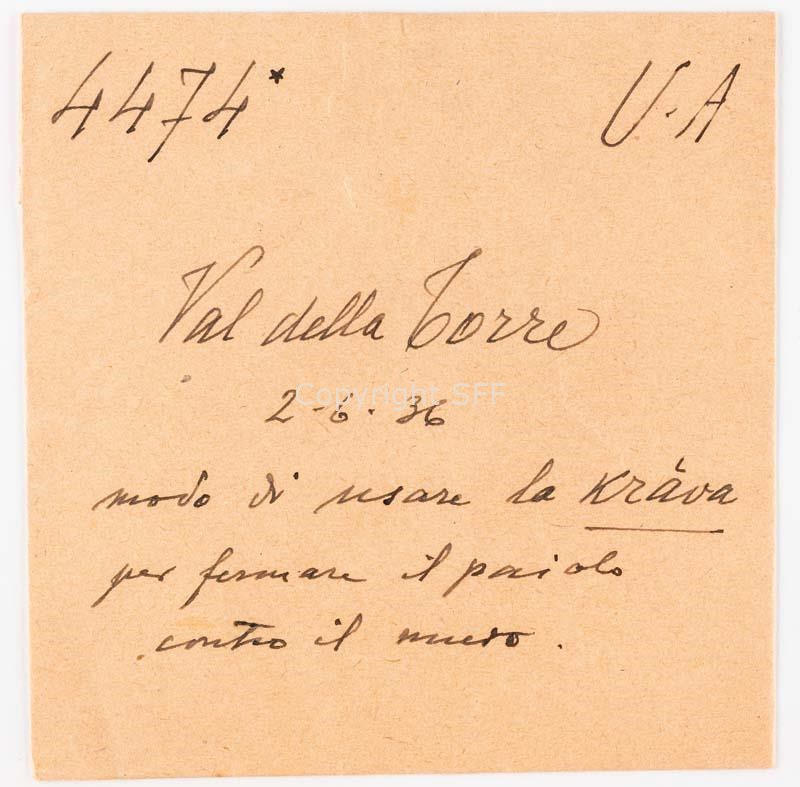 4474* U.A
Val della Torre
Copyright SFF
2-6.36
modo di usare la kráva
per fermare il paiolo
contro il muro.